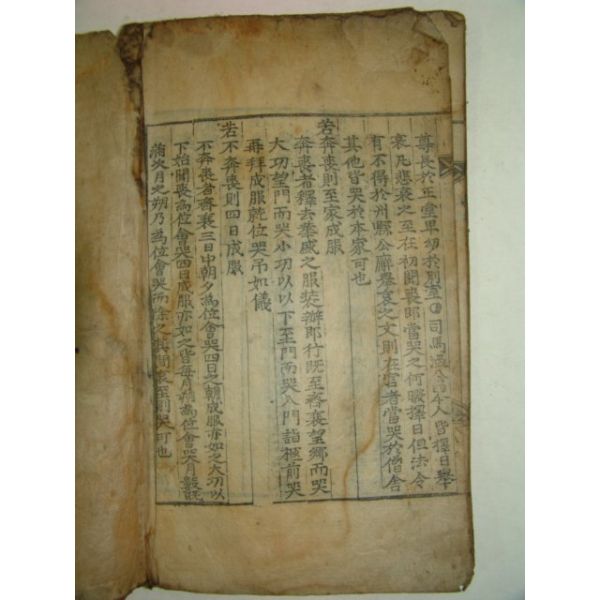 尊長於正堂卑幼於別室○司馬溫公曰今人皆擇日舉
哀凡悲哀之至在初聞喪卽當哭之何暇擇日但法令
有不得於州縣公廨舉哀之文則在官者當哭於僧舍
其他皆哭於本家可也
若奔喪則至家成服
奔喪者釋去華盛之服裝辦卽行旣至齊衰望鄕而哭
大功望門而哭小功以下至門而哭入門詣柩前哭
再拜成服就位哭吊如儀
若不奔喪則四日成服
不奔喪者齊衰三日中朝夕爲位會哭四日之朝成服亦如之大功以
下始聞喪爲位會哭四日成服亦如之皆每月朔爲位會哭月數旣
滿次月之朔乃爲位會哭而除之其間哀至則哭可也